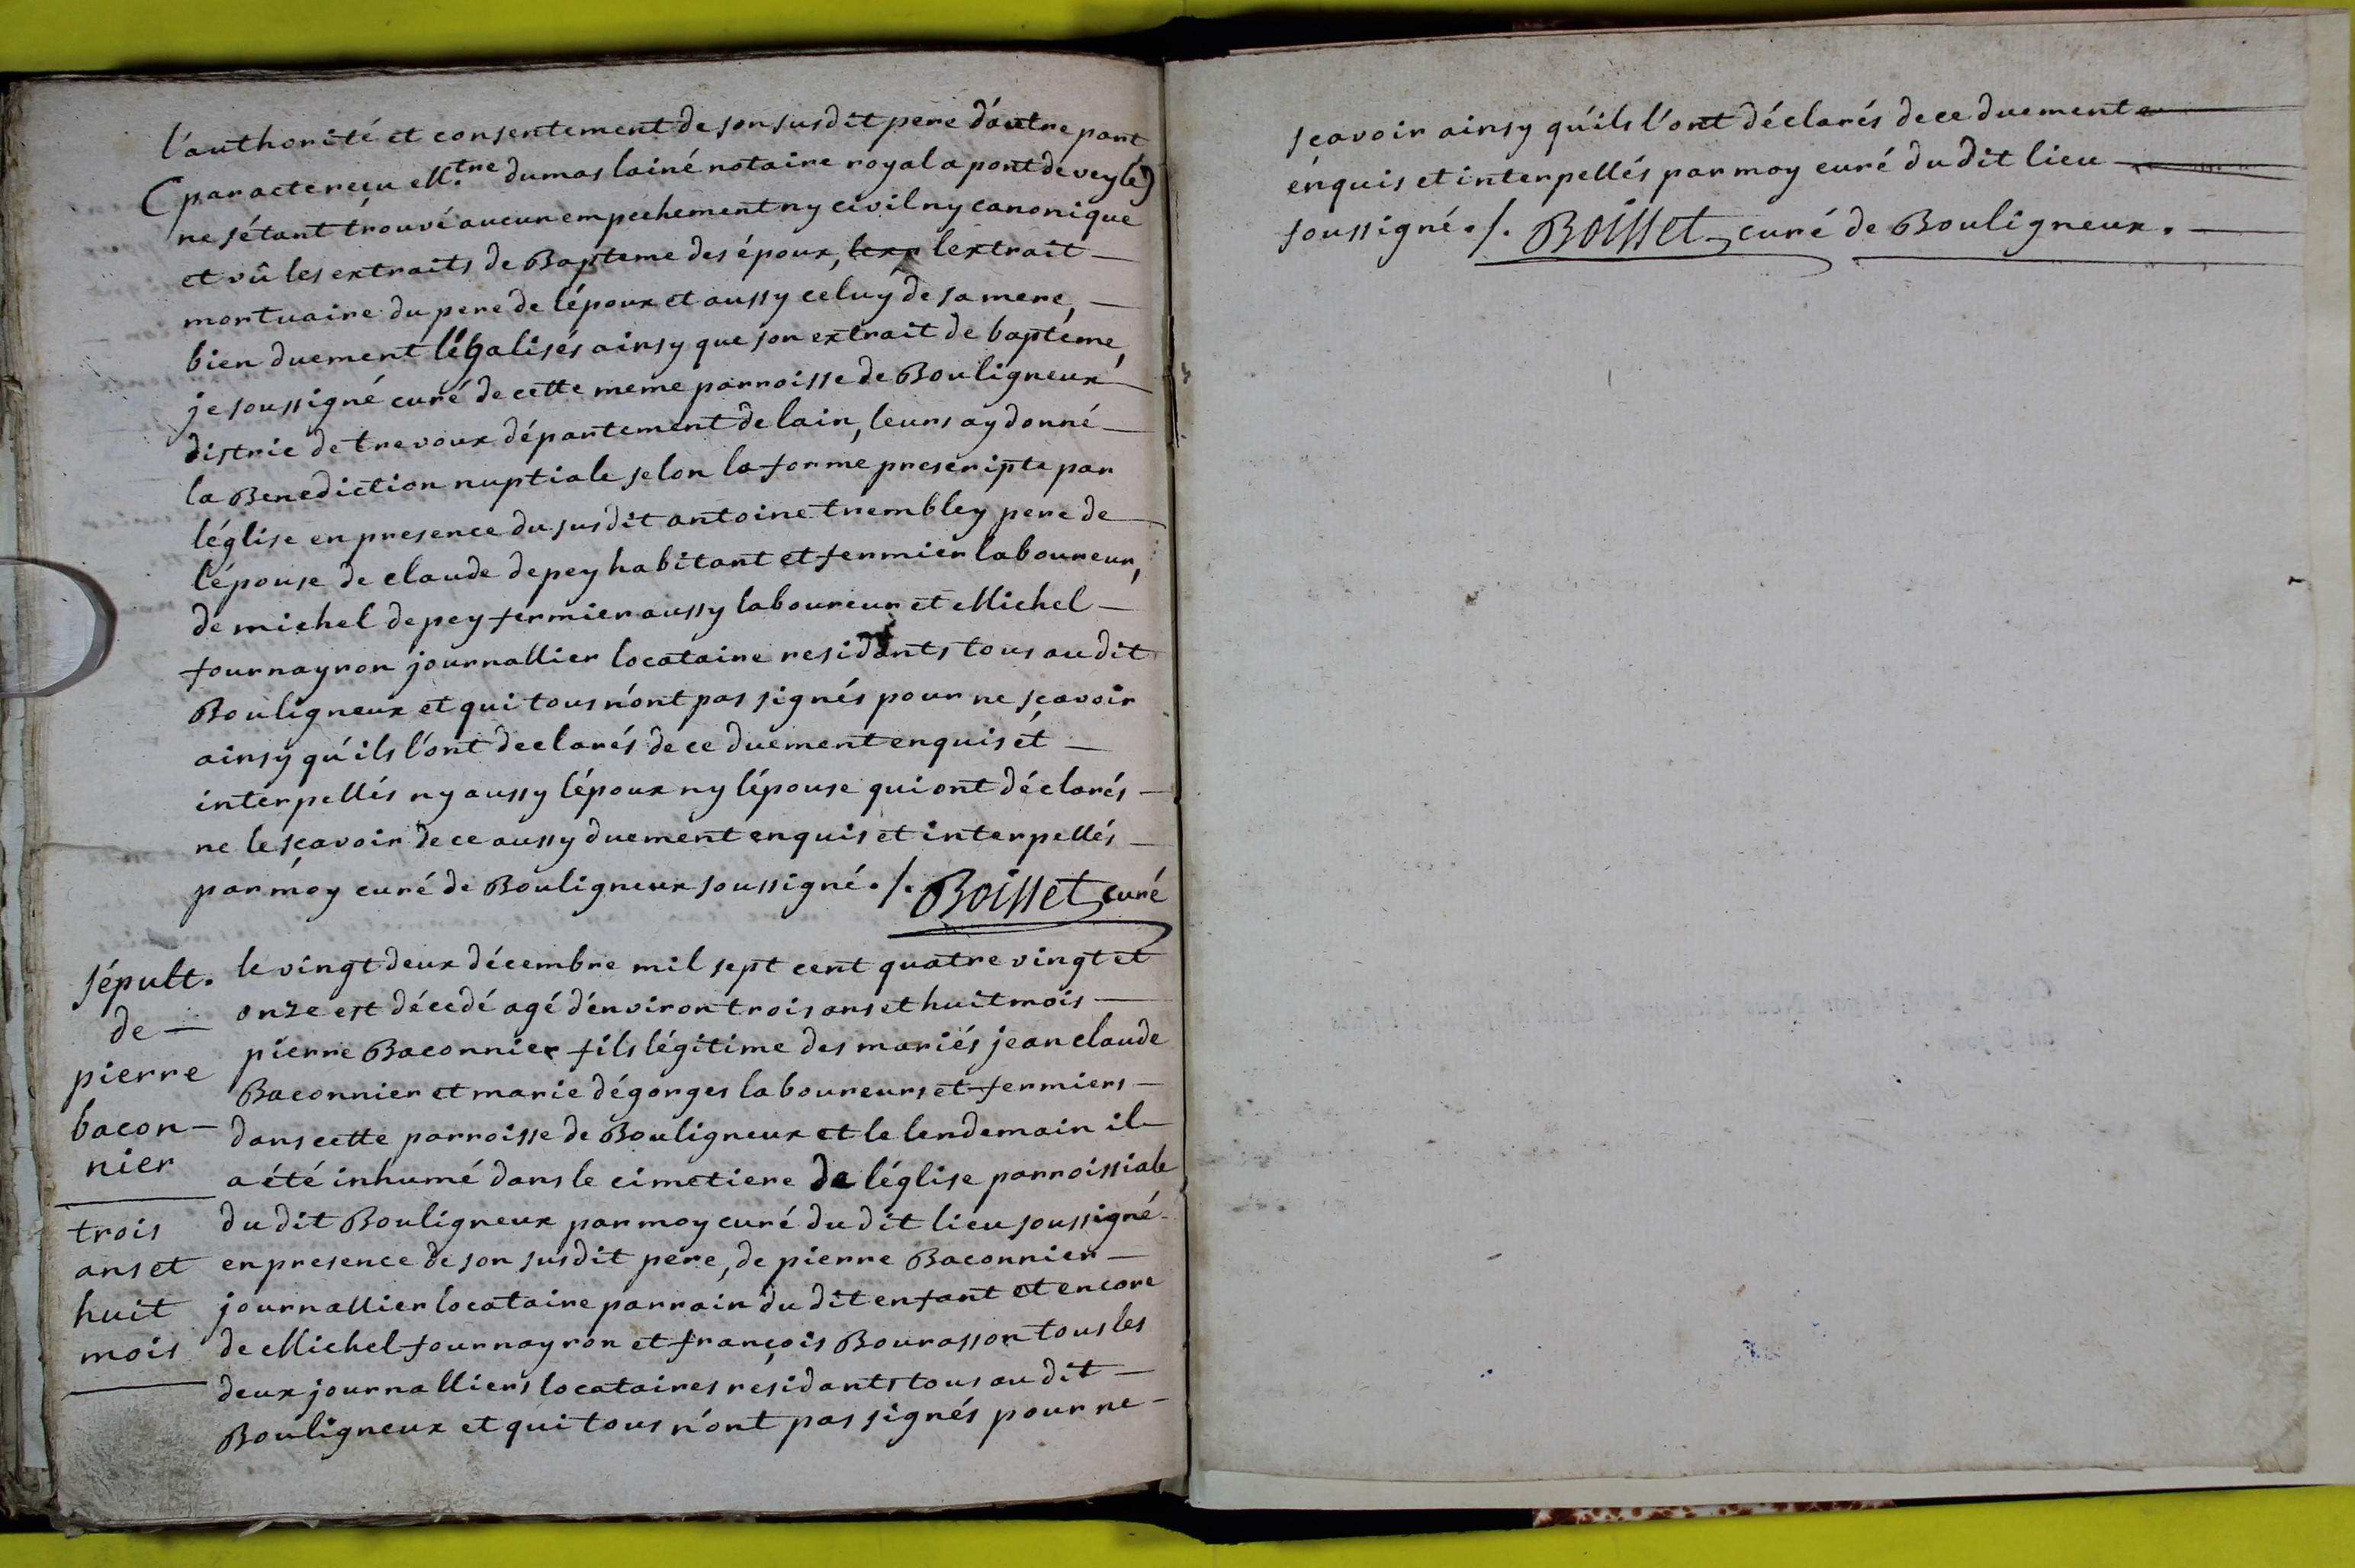 l'authorité et consentement de son susdit pere d'autre part
(par acte reçu M.tre dumas lainé notaire royal a pont de veyle)
ne s'étant trouvé aucun empechement ny civil ny canonique
et vû les extraits de Bapteme des époux, lextrait
mortuaire du pere de l'époux et aussy celuy de sa mere,
bien duement légalisés ainsy que son extrait de baptéme,
je soussigné curé de cette meme parroisse de Bouligneux
distric de trevoux département de lain, leurs ay donné
la Benediction nuptiale selon la forme prescripte par
l'église en presence du susdit antoine trembley pere de
l'épouse de claude depey habitant et fermier laboureur,
de michel depey fermier aussy laboureur et Michel
fournayron journallier locataire residants tous au dit
Bouligneux et qui tous n'ont pas signés pour ne sçavoir
ainsy qu'ils l'ont declarés de ce duement enquis et
interpellés ny aussy l'époux ny l'épouse qui ont déclarés
ne le sçavoir de ce aussy duement enquis et interpellés
par moy curé de Bouligneux soussigné ./. Boisset curé
sépult.
de
pierre
bacon-
nier
trois
ans et
huit
mois
le vingt deux décembre mil sept cent quatre vingt et
onze est décedé agé d'environ trois ans et huit mois
pierre Baconnier fils légitime des mariés jean claude
Baconnier et marie dégorges laboureurs et fermiers
dans cette parroisse de Bouligneux et le lendemain il
a été inhumé dans le cimetiere de l'église parroissiale
du dit Bouligneux par moy curé du dit lieu soussigné
en presence de son susdit pere, de pierre Baconnier
journallier locataire parrain du dit enfant et encore
de Michel fournayron et françois Bourasson tous les
deux journalliers locataires residants tous au dit
Bouligneux et qui tous n'ont pas signés pour ne
sçavoir ainsy qu'ils l'ont déclarés de ce duement
enquis et interpellés par moy curé du dit lieu
soussigné ./. Boisset curé de Bouligneux.